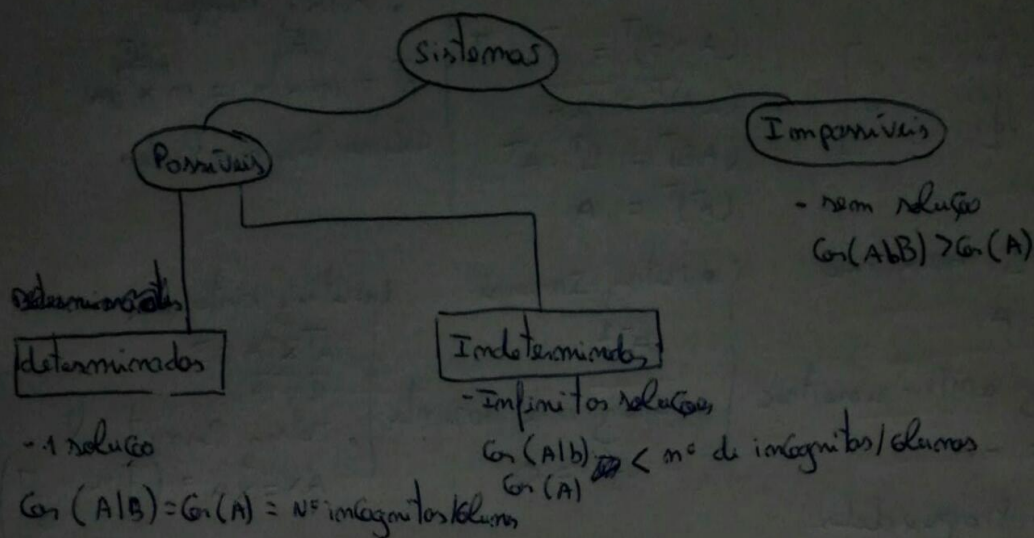 Sistemas
Possíveis
Impossíveis
- sem solução
Car(A|B) > Car(A)
determinados
Indeterminados
- 1 solução
Car(A|B) = Car(A) = Nº incognitas/colunas
- Infinitas soluções
Car(A|b) < nº de incognitas/colunas
Car(A)